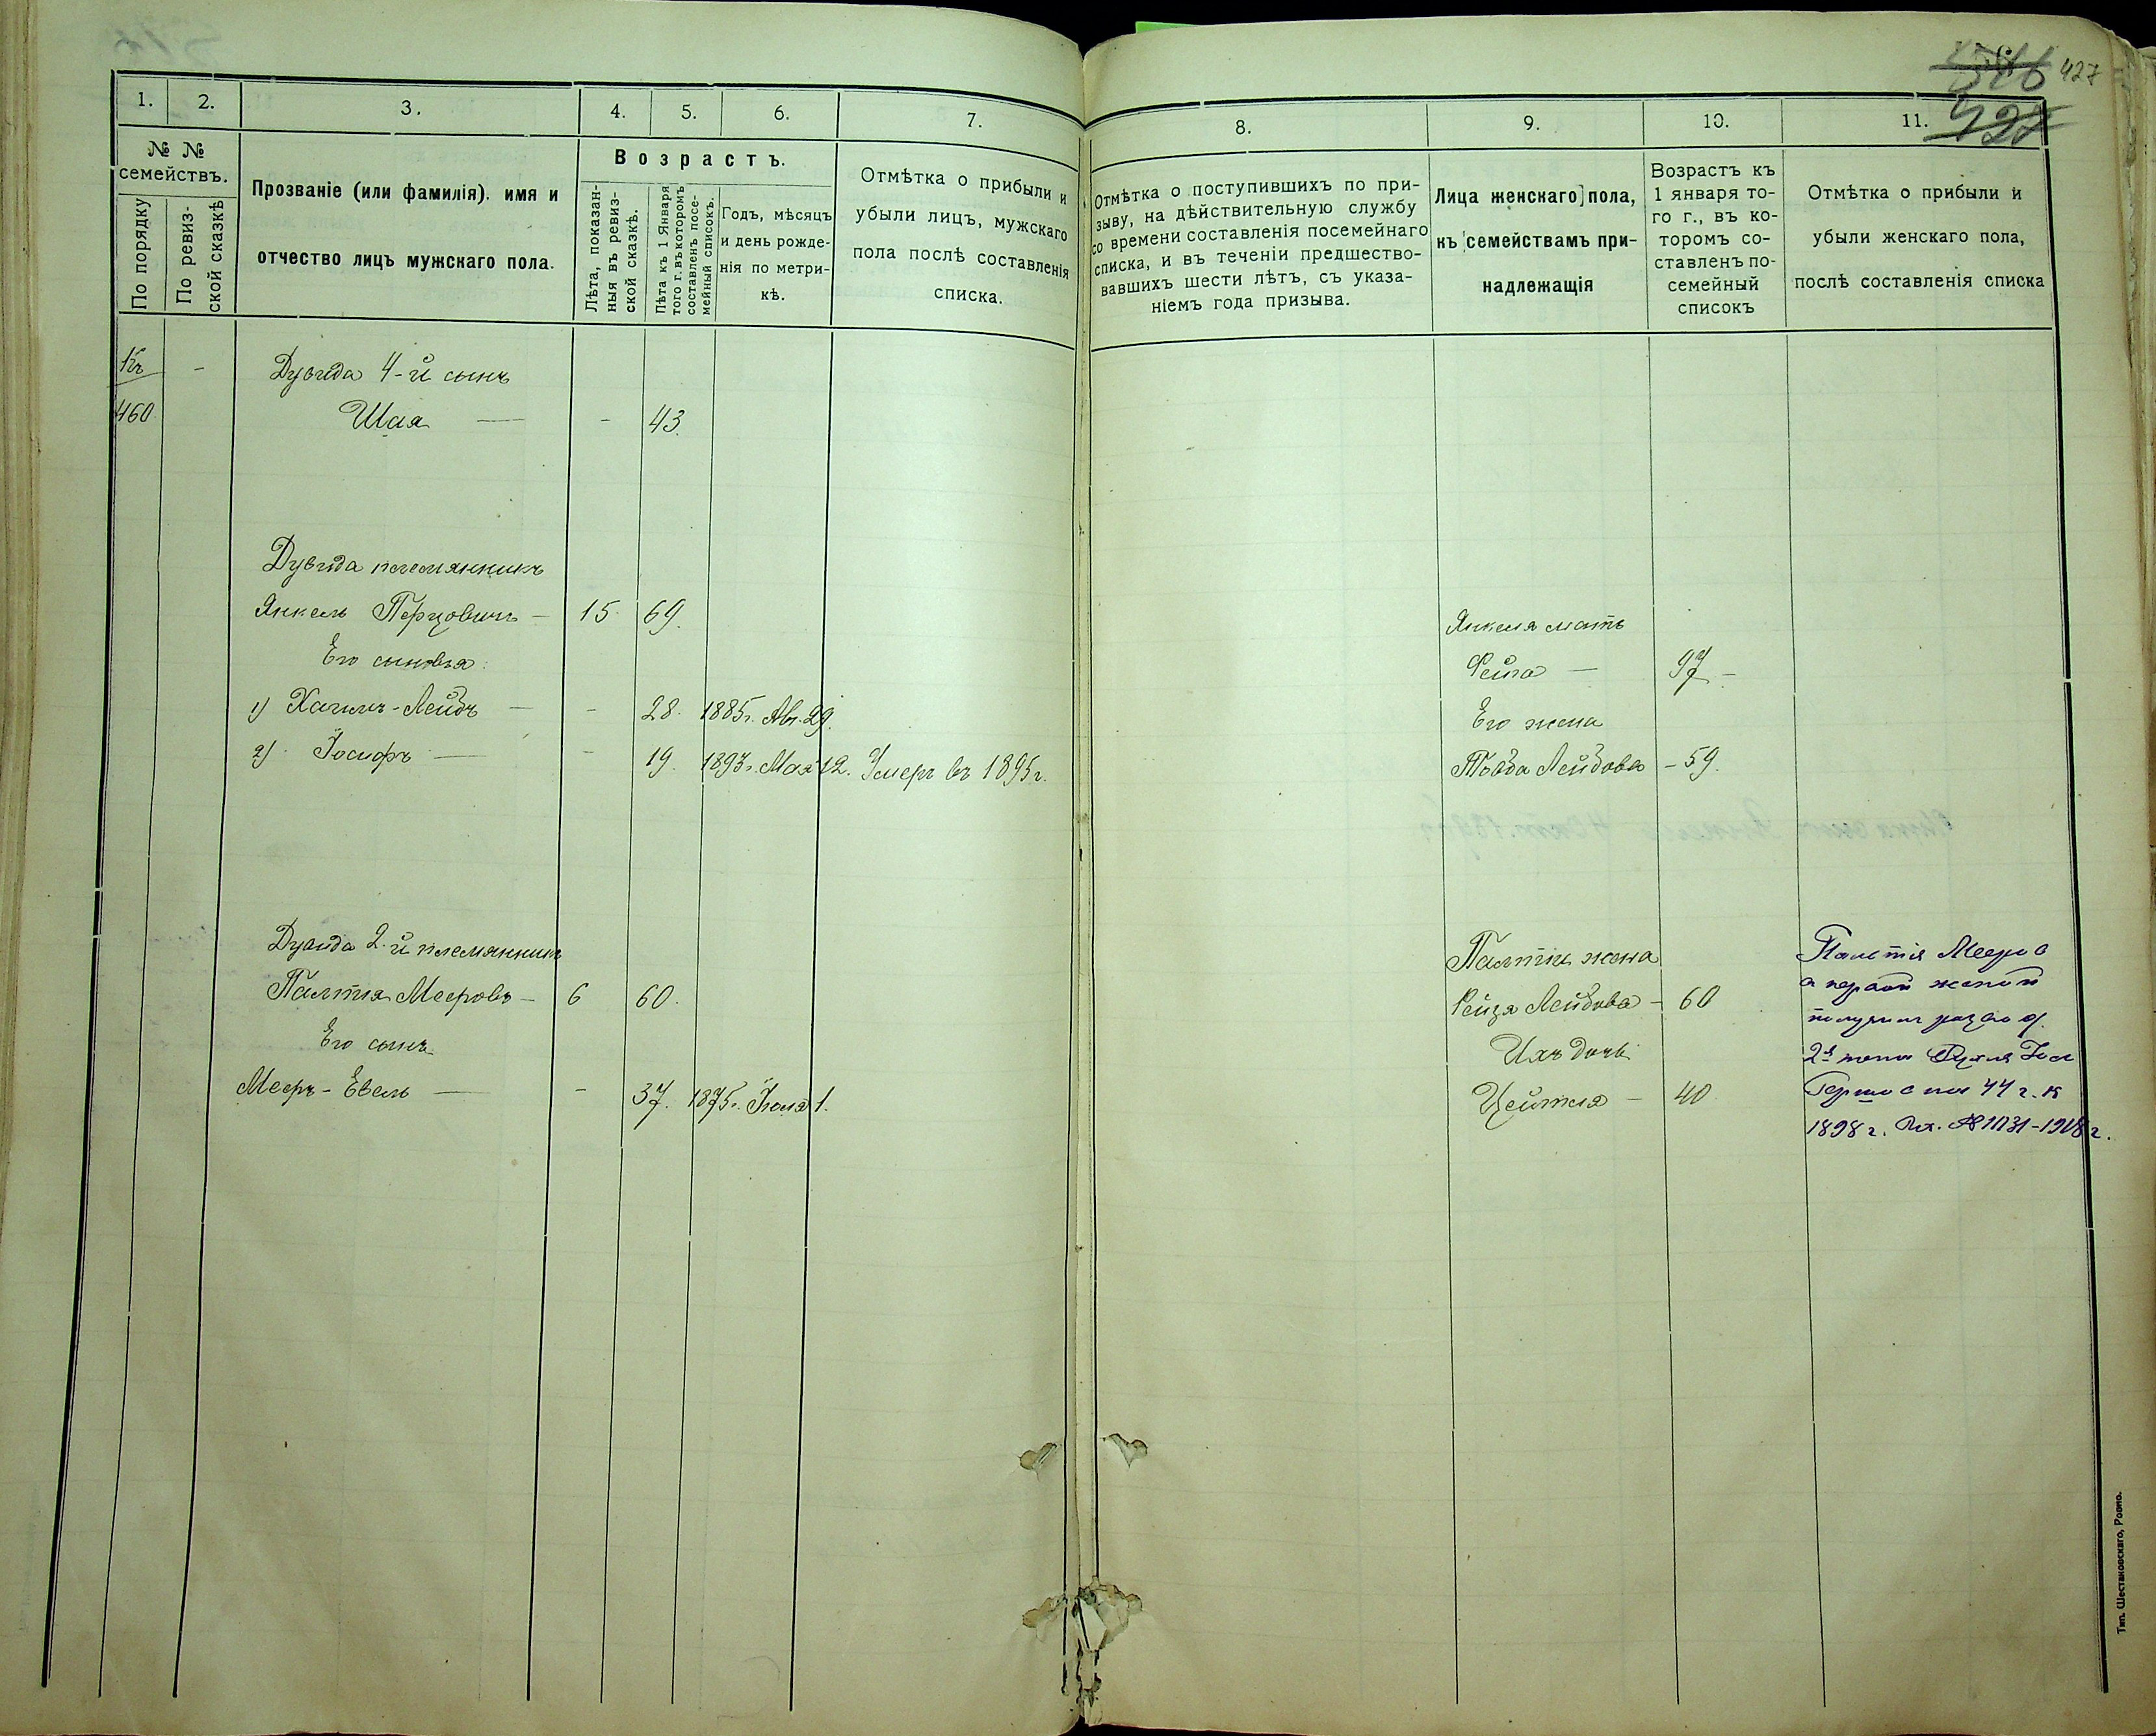 516 427
427
1. 2. 3. 4. 5. 6. 7.
№ № семействъ.
По порядку
По ревиз-
ской сказкѣ
Прозваніе (или фамилія). имя и
отчество лицъ мужскаго пола.
Возрастъ.
Лѣта, показан-
ныя въ ревиз-
ской сказкѣ.
Лѣта къ 1 Января
того г. въ которомъ
составленъ посе-
мейный списокъ.
Годъ, мѣсяцъ
и день рожде-
нія по метри-
кѣ.
Отмѣтка о прибыли и
убыли лицъ, мужскаго
пола послѣ составленія
списка.
Къ - Дувида 4-й сынъ
460 Шая — - 43.
Дувида племянникъ
Янкель Перцовичъ — 15 69.
Его сыновья:
1) Хаимъ-Лейбъ — - 28. 1885г. Авг. 29.
2) Іосифъ — - 19. 1893г. Мая 12. Умеръ въ 1895г.
Дувида 2-й племянникъ
Палтія Мееровъ — 6 60.
Его сынъ
Мееръ-Евель — - 37. 1875г. Іюля 1.
8. 9. 10. 11.
Отмѣтка о поступившихъ по при-
зыву, на дѣйствительную службу
со времени составленія посемейнаго
списка, и въ теченіи предшество-
вавшихъ шести лѣтъ, съ указа-
ніемъ года призыва.
Лица женскаго пола,
къ семействамъ при-
надлежащія
Возрастъ къ
1 января то-
го г., въ ко-
торомъ со-
ставленъ по-
семейный
списокъ
Отмѣтка о прибыли и
убыли женскаго пола,
послѣ составленія списка
Янкеля мать
Фейга — 97 -
Его жена
Товба Лейбова - 59.
Палтія жена
Рейзя Лейбова - 60
Ихъ дочь
Цейтля - 40
Палтія Мееров
с первой женой
получил развод.
2я жена Рухля Іос
Гершовна 44 г. в
1898 г. Вх. № 11131-1908 г.
Тип. Шестаковскаго, Ровно.